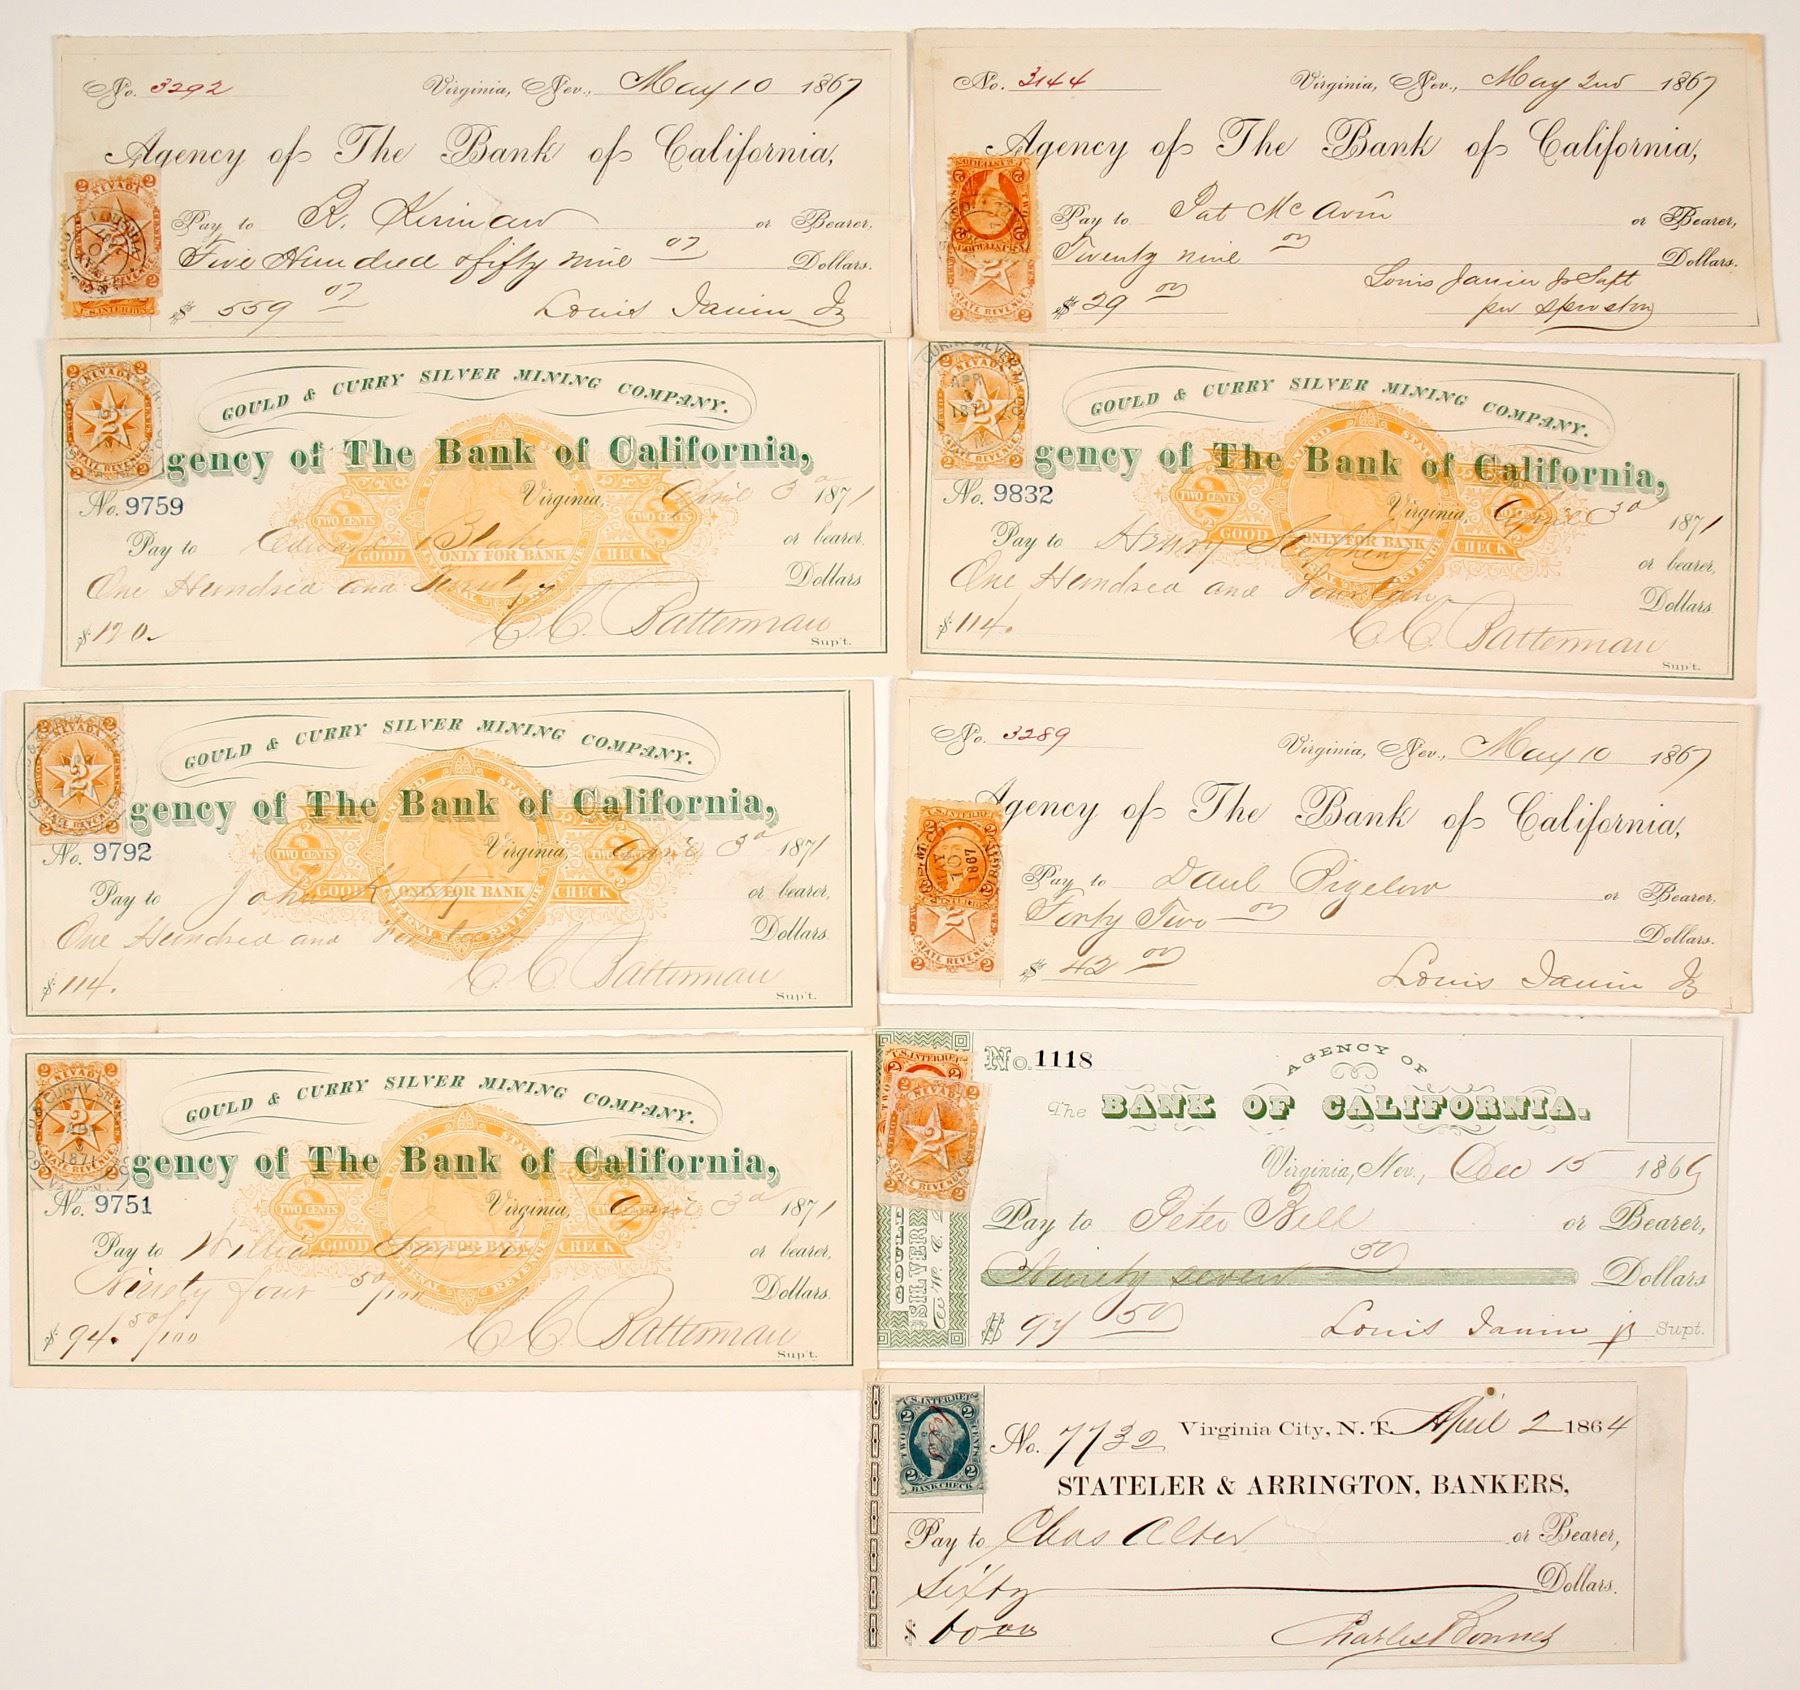 No. 3292 Virginia, Nev., May 10 1867
Agency of The Bank of California,
Pay to R. Kirman or Bearer,
Five Hundred & fifty nine 00 Dollars.
$ 559 00 Louis Janin Jr
No. 3144 Virginia, Nev., May 2nd 1867
Agency of The Bank of California,
Pay to Pat Mc Avin or Bearer,
Twenty nine 00 Dollars.
Louis Janin Jr Supt
$ 29 00 per
GOULD & CURRY SILVER MINING COMPANY.
gency of The Bank of California,
No. 9759 Virginia, April 3d 1871
Pay to Edward Blake or bearer.
One Hundred and Twenty Dollars
$ 120. C. C. Batterman
Sup't.
GOULD & CURRY SILVER MINING COMPANY.
gency of The Bank of California,
No. 9832 Virginia, April 3d 1871
Pay to Henry Stephens or bearer,
One Hundred and Fourteen Dollars
$ 114. C. C. Batterman
Sup't.
GOULD & CURRY SILVER MINING COMPANY.
gency of The Bank of California,
No. 9792 Virginia, April 3d 1871
Pay to John or bearer,
One Hundred and Dollars.
$ 114. C. C. Batterman
Sup't.
No. 3289 Virginia, Nev., May 10 1867
Agency of The Bank of California,
Pay to Daul Bigelow or Bearer.
Forty Two 00 Dollars.
$ 42 00 Louis Janin Jr
GOULD & CURRY SILVER MINING COMPANY.
gency of The Bank of California,
No. 9751 Virginia, April 3d 1871
Pay to William or bearer,
Ninety four 50/100 Dollars.
$ 94. 50/100 C. C. Batterman
Sup't.
No. 1118 AGENCY OF
The BANK OF CALIFORNIA.
Virginia, Nev., Dec 15 1866
Pay to Peter Bell or Bearer,
Ninety seven 50 Dollars
$ 97 50 Louis Janin jr Supt.
No. 7732 Virginia City, N. T. April 2 1864
STATELER & ARRINGTON, BANKERS,
Pay to Chas Alter or Bearer,
Sixty Dollars.
$ 60 00 Charles Bonner
U.S. INTER. REV.
2 2
TWO CENTS
BANK CHECK
NEVADA
2
STATE REVENUE
TWO CENTS
GOOD ONLY FOR BANK CHECK